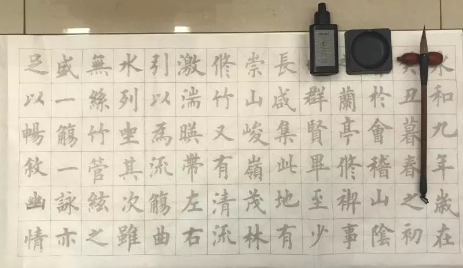 永和九年歲在
癸丑暮春之初
於會稽山陰
蘭亭修禊事
群賢畢至少
長咸集此地有
崇山峻嶺茂林
修竹又有清流
激湍暎帶左右
引以為流觴曲
水列坐其次雖
無絲竹管絃之
盛一觴一詠亦
足以暢敘幽情